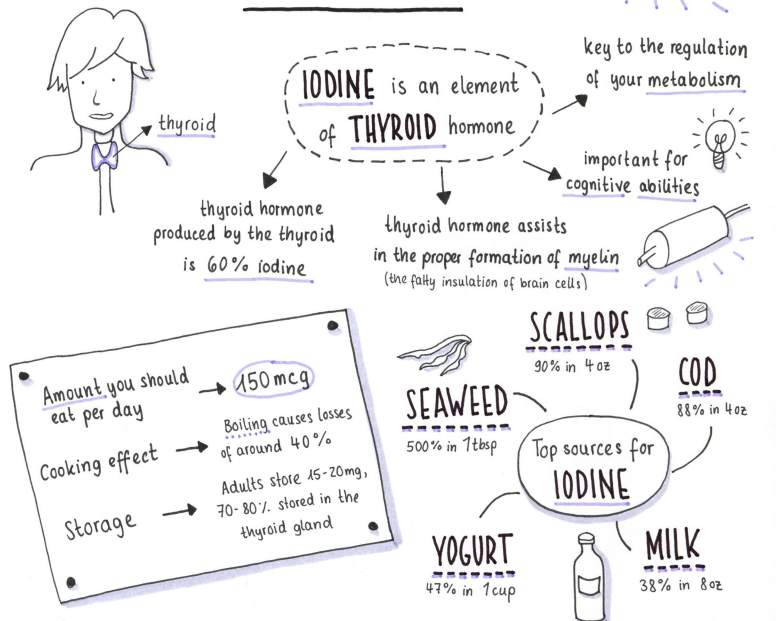 thyroid
IODINE is an element
of THYROID hormone
key to the regulation
of your metabolism
important for
cognitive abilities
thyroid hormone
produced by the thyroid
is 60% iodine
thyroid hormone assists
in the proper formation of myelin
(the fatty insulation of brain cells)
Amount you should
eat per day
150 mcg
Cooking effect
Boiling causes losses
of around 40%
Storage
Adults store 15-20mg,
70-80% stored in the
thyroid gland
Top sources for
IODINE
SCALLOPS
90% in 4 oz
COD
88% in 4oz
SEAWEED
500% in 1tbsp
YOGURT
47% in 1cup
MILK
38% in 8oz